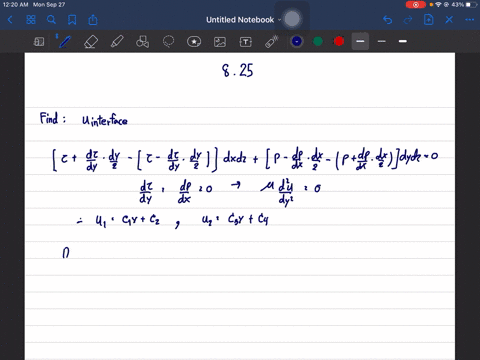 12:20 AM Mon Sep 27
43%
Untitled Notebook
8.25
Find: u interface
[τ + dτ/dy · dy/2 - [τ - dτ/dy · dy/2]] dxdz + [P - dp/dx · dx/2 - (P + dp/dx · dx/2)] dydz = 0
dτ/dy = dp/dx = 0 → μ d²u/dy² = 0
∴ u₁ = C₁y + C₂ , u₂ = C₃y + C₄